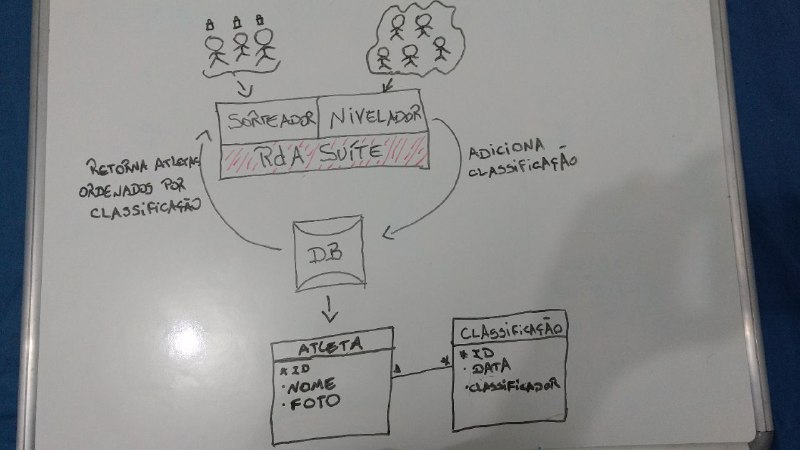 SORTEADOR
NIVELADOR
RdA SUÍTE
RETORNA ATLETAS
ORDENADOS POR
CLASSIFICAÇÃO
ADICIONA
CLASSIFICAÇÃO
DB
ATLETA
* ID
· NOME
· FOTO
1
*
CLASSIFICAÇÃO
* ID
· DATA
· CLASSIFICADOR